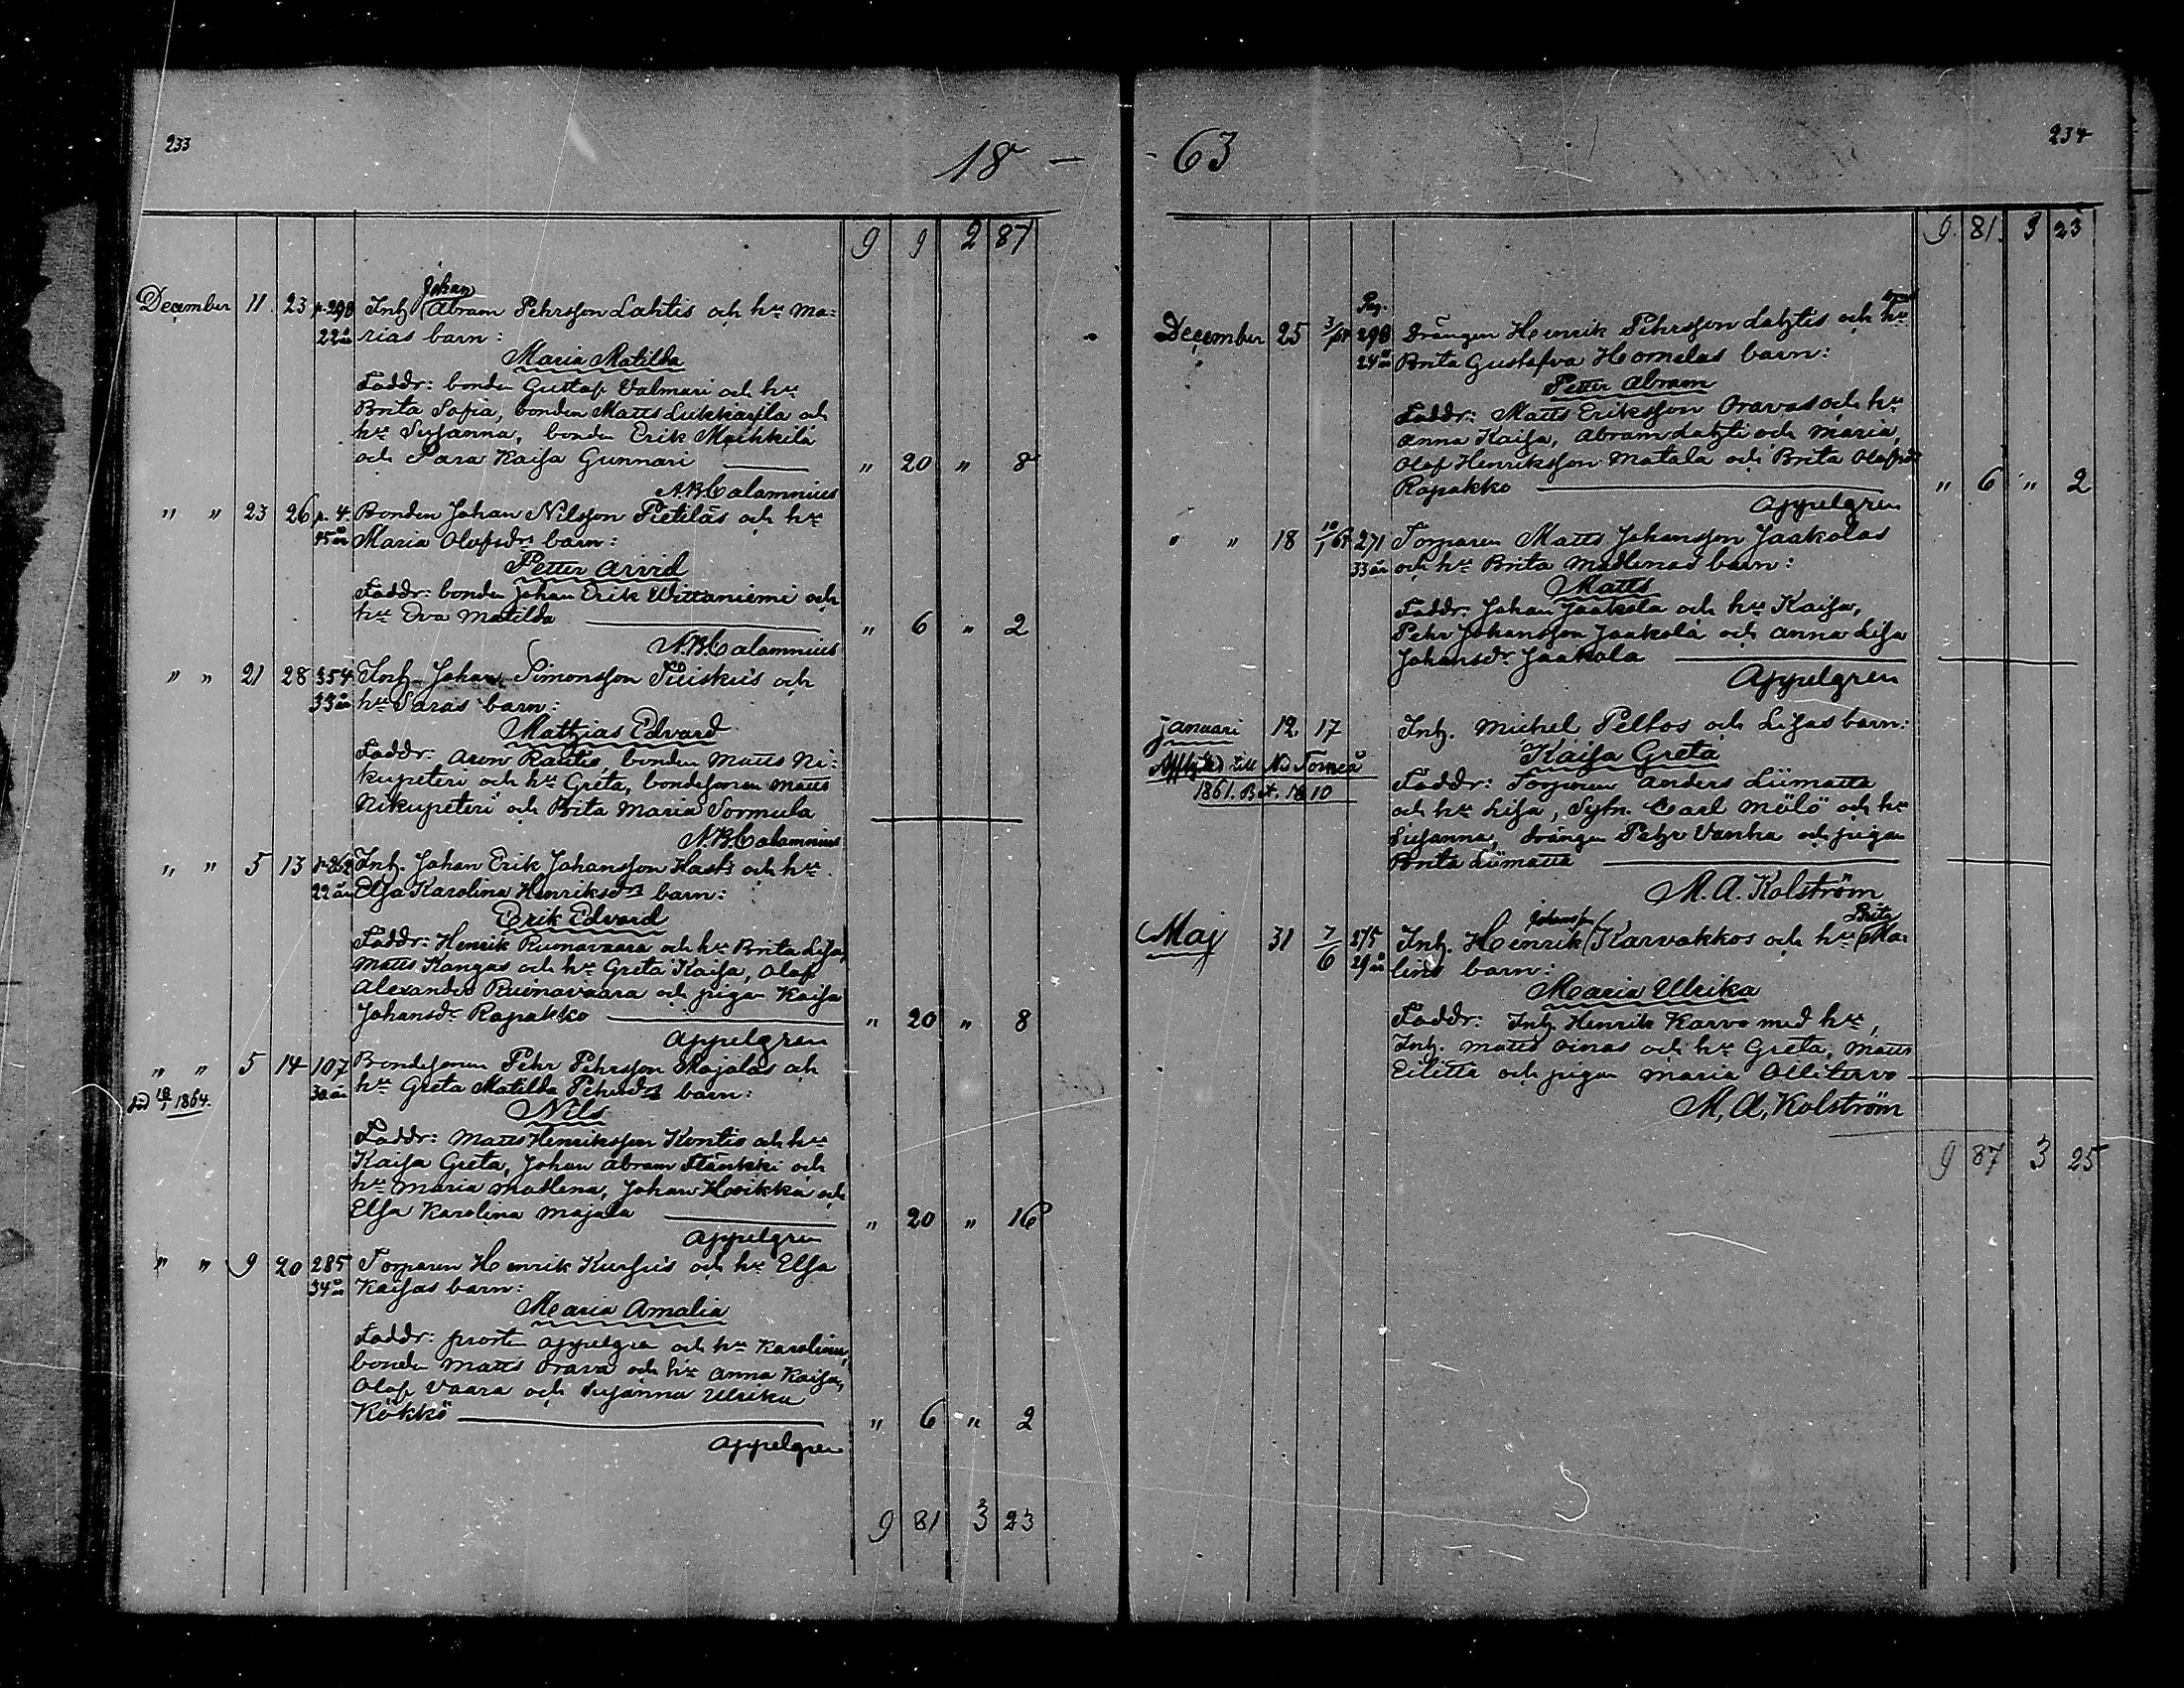 233
18 —
9 9 2 87
Johan
December 11 23 p. 290 Inh. Abram Pehrsson Lahtis och hu Ma=
22 år rias barn:
Maria Matilda
Faddr: bonden Gustaf Valmari och hu
Brita Sofia, bonden Matts Lukkarila och
hu Susanna, bonden Erik
och Sara Kaisa Gunnari — " 20 " 8
N.B. Calamnius
" " 23 26 p. 4. Bonden Johan Nilsson Pietiläs och hu
45 år Maria Olofsdrs barn:
Petter Arvid
Faddr: bonden Johan Erik Wittaniemi och
hu Eva Matilda — " 6 " 2
N.B. Calamnius
" " 21 28 354 Inh. Johan Simonsson och
33 år hu Saras barn:
Mathias Edvard
Faddr: Aron Rautio, bonden Matts Ni=
kupeteri och hu Greta, bondesonen Matts
Nikupeteri och Brita Maria Sormula —
N.B. Calamnius
" " 5 13 p. 262 Inh. Johan Erik Johansson Hast's och hu
22 år Elsa Karolina Henriksdrs barn:
Erik Edvard
Faddr: Henrik Ruonavaara och hu Brita Lisa,
Matts Kangas och hu Greta Kaisa, Olof
Alexander Ruonavaara och pigan Kaisa
Johansdr Rapakko — " 20 " 8
Appelgren
" " 5 14 107 Bondesonen Pehr Pehrsson Majalas och
död 1864. 30 år hu Greta Matilda Pehrsdrs barn:
Nils
Faddr: Matts Henriksson Kontio och hu
Kaisa Greta, Johan Abram och
hu Maria Madlena, Johan och
Elsa Karolina Majala — " 20 " 16
Appelgren
" " 9 20 285 Torparen Henrik Kursus och hu Elsa
34 år Kaisas barn:
Maria Amalia
Faddr: prosten Appelgren och hu Karolina,
bonden Matts Orava och hu Anna Kaisa,
Olof Vaara och Susanna Ulrika
Kökkö — " 6 " 2
Appelgren
9 81 3 23
- 63
234
9 81 3 23
Pag.
December 25 3/ 290 Drängen Henrik Pehrsson Lahtis och hu
24 år Brita Gustafva Hornelas barn:
Petter Abram
Faddr: Matts Eriksson Oravas och hu
Anna Kaisa, Abram Lahti och Maria,
Olof Henriksson Matala och Brita Olofsdr
Rapakko — " 6 " 2
Appelgren
" " 18 10/1 64 271 Torparen Matts Johansson Jaakolas
33 år och hu Brita Madlenas barn:
Matts
Faddr: Johan Jaakola och hu Kaisa,
Pehr Johansson Jaakola och Anna Lisa
Johansdr Jaakola —
Appelgren
Januari 12. 17 Inh. Michel Peltos och Lisas barn:
Kaisa Greta
till Nd Torneå
1861. Bet. 10
Faddr: Torparen Anders Liimatta
och hu Lisa, Sytn. Carl och hu
Susanna, drängen Pehr Vanha och pigan
Brita Liimatta —
M. A. Kolström
Johansson Brita
Maj 31 7/6 275 Inh. Henrik Karvakkos och hu Ma=
29 år lins barn:
Maria Ulrika
Faddr: Inh. Henrik Karvo med hu,
Inh. Matts Oinas och hu Greta, Matts
och pigan Maria Ollitervo —
M. A. Kolström
9 87 3 25